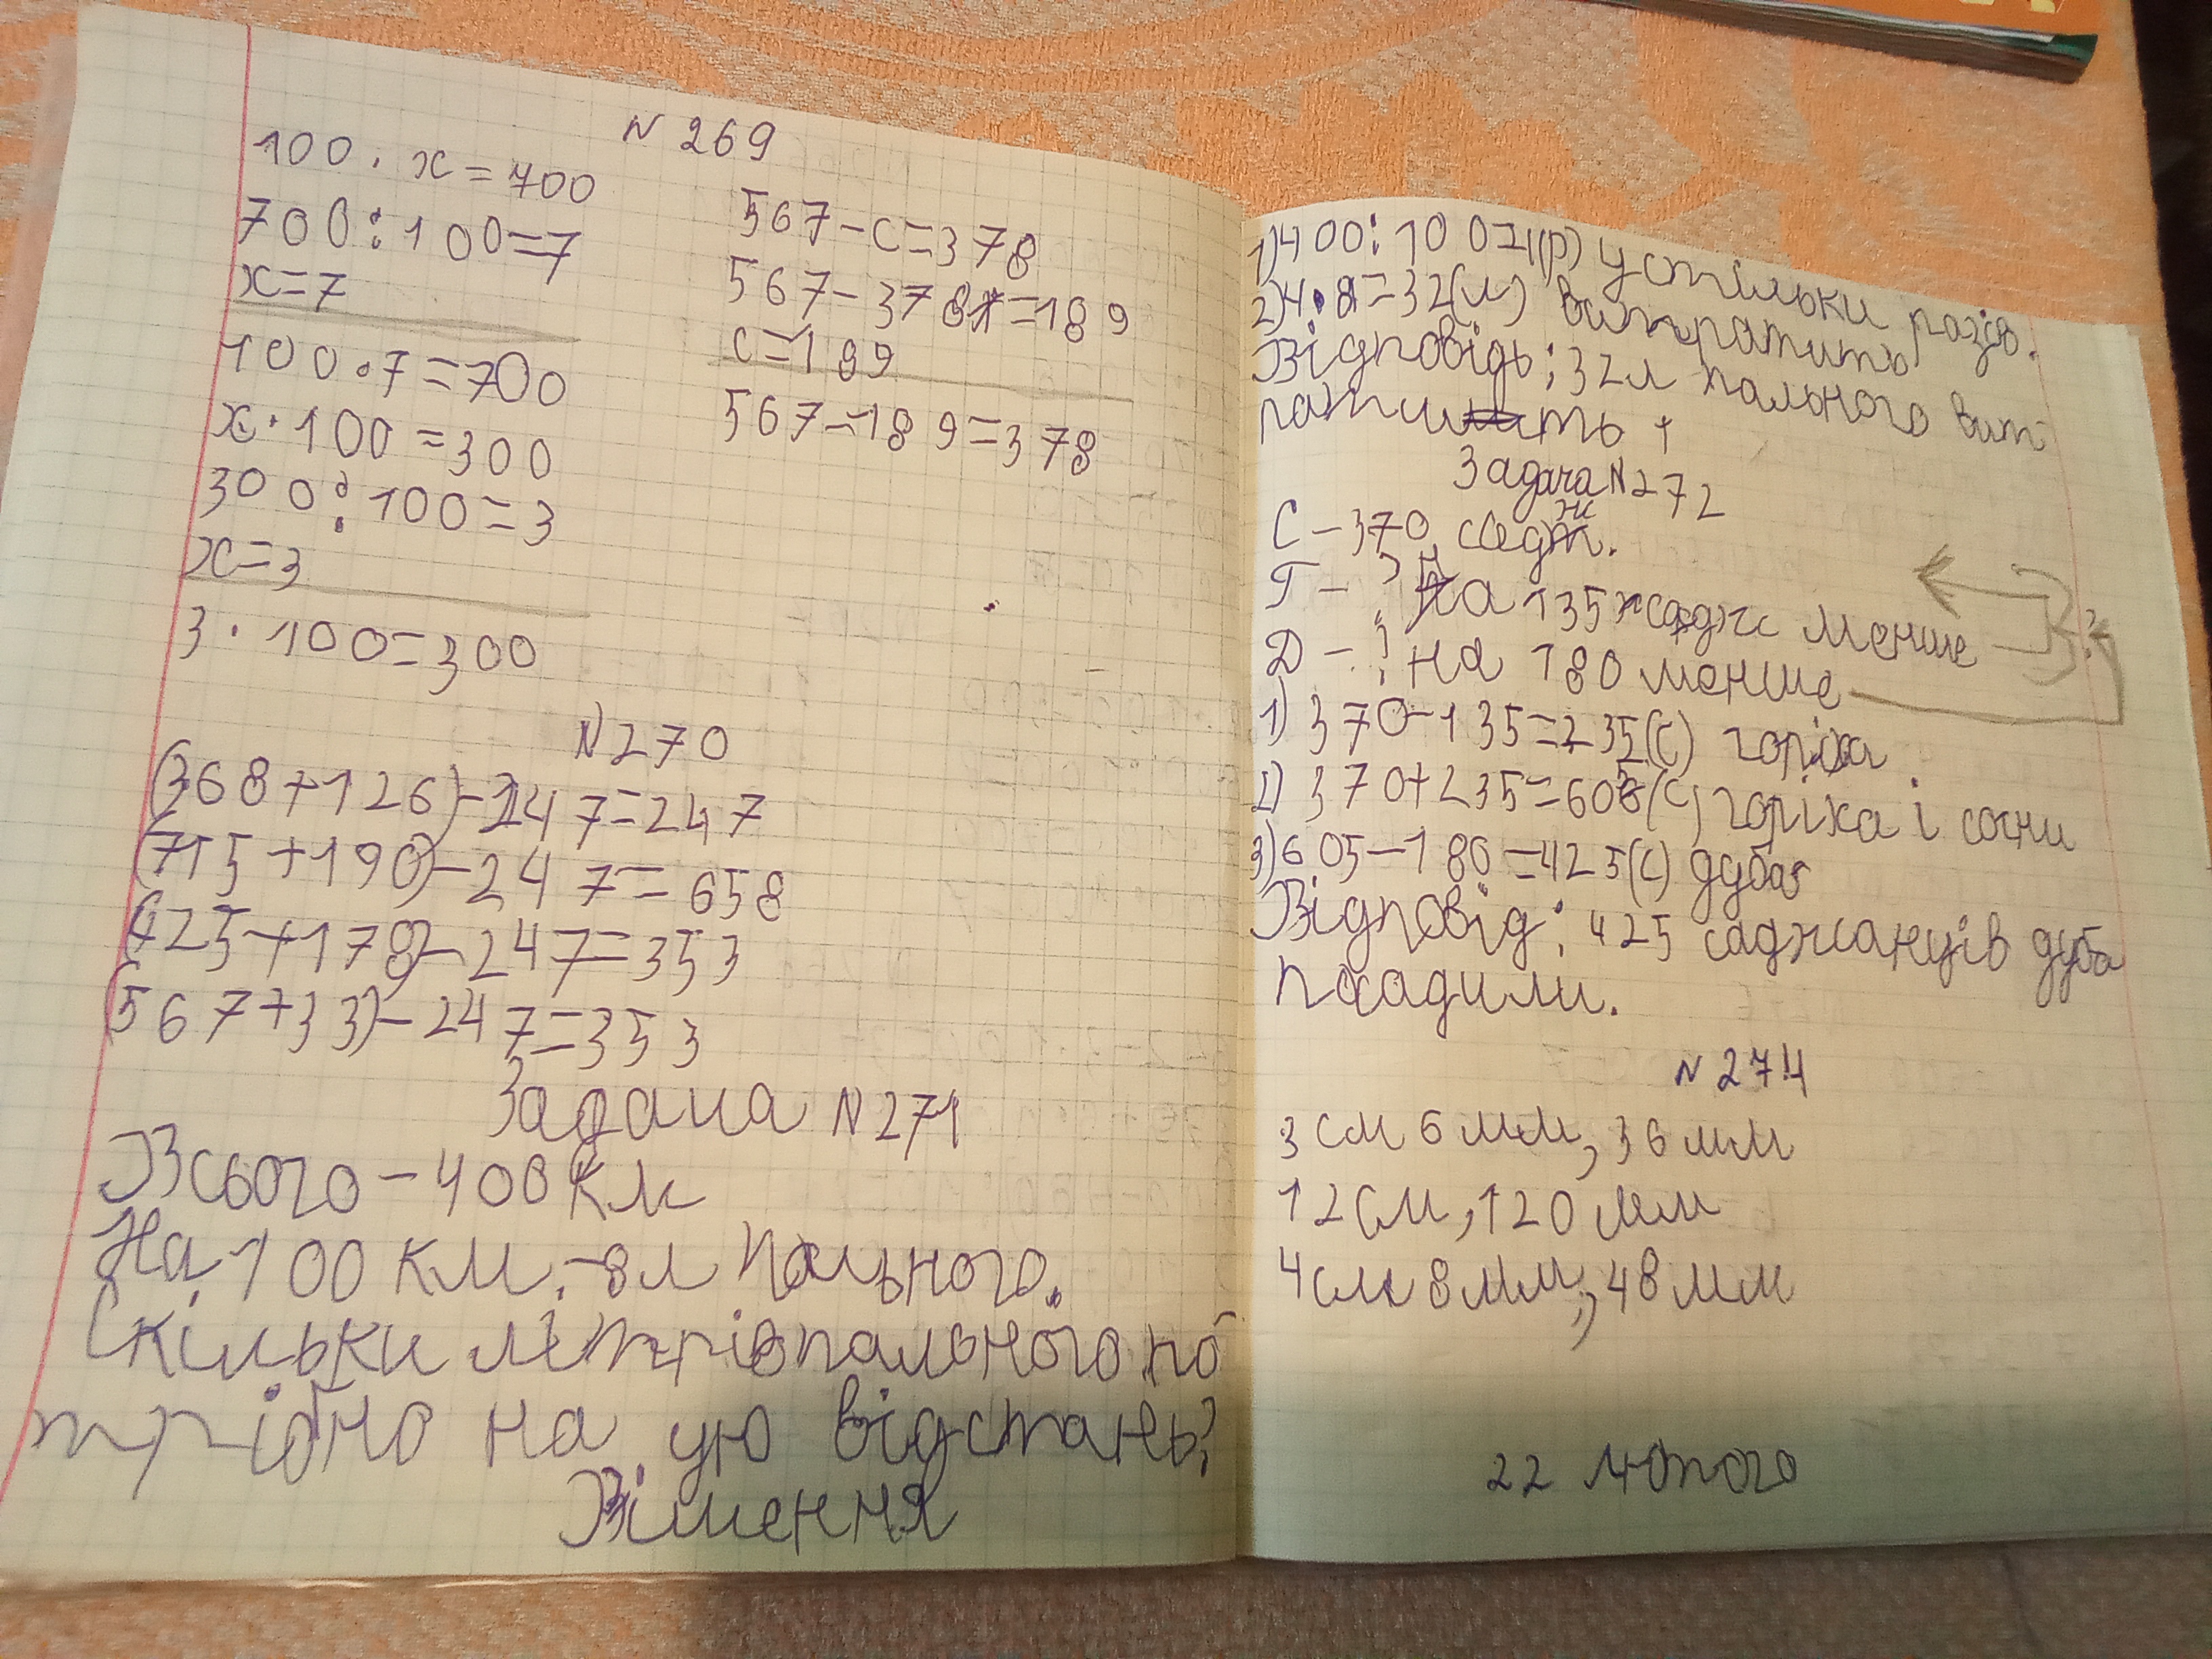 N 269
100 · x = 700
700 : 100 = 7
x = 7
100 · 7 = 700
x · 100 = 300
300 : 100 = 3
x = 3
3 · 100 = 300
567 - c = 378
567 - 378 = 189
c = 189
567 - 189 = 378
N 270
(368 + 126) - 247 = 247
(715 + 190) - 247 = 658
(425 + 178) - 247 = 353
(567 + 33) - 247 = 353
Задача N 271
Всього - 400 км
На 100 км. - 8 л пального.
Скільки літрів пального по
трібно на цю відстань?
Рішення
1) 400 : 100 = 4 (р) у стільки разів.
2) 4 · 8 = 32 (л) витратить
Відповідь: 32 л пального вит
ратить
Задача N 272
С - 370 садж.
Г - ? на 135 садж менше
Д - ? на 180 менше
?
1) 370 - 135 = 235 (с) горіха
2) 370 + 235 = 605 (с) горіха і сосни
3) 605 - 180 = 425 (с) дуба
Відповід: 425 саджанців дуба
посадили.
N 274
3 см 6 мм, 36 мм
12 см, 120 мм
4 см 8 мм, 48 мм
22 лютого